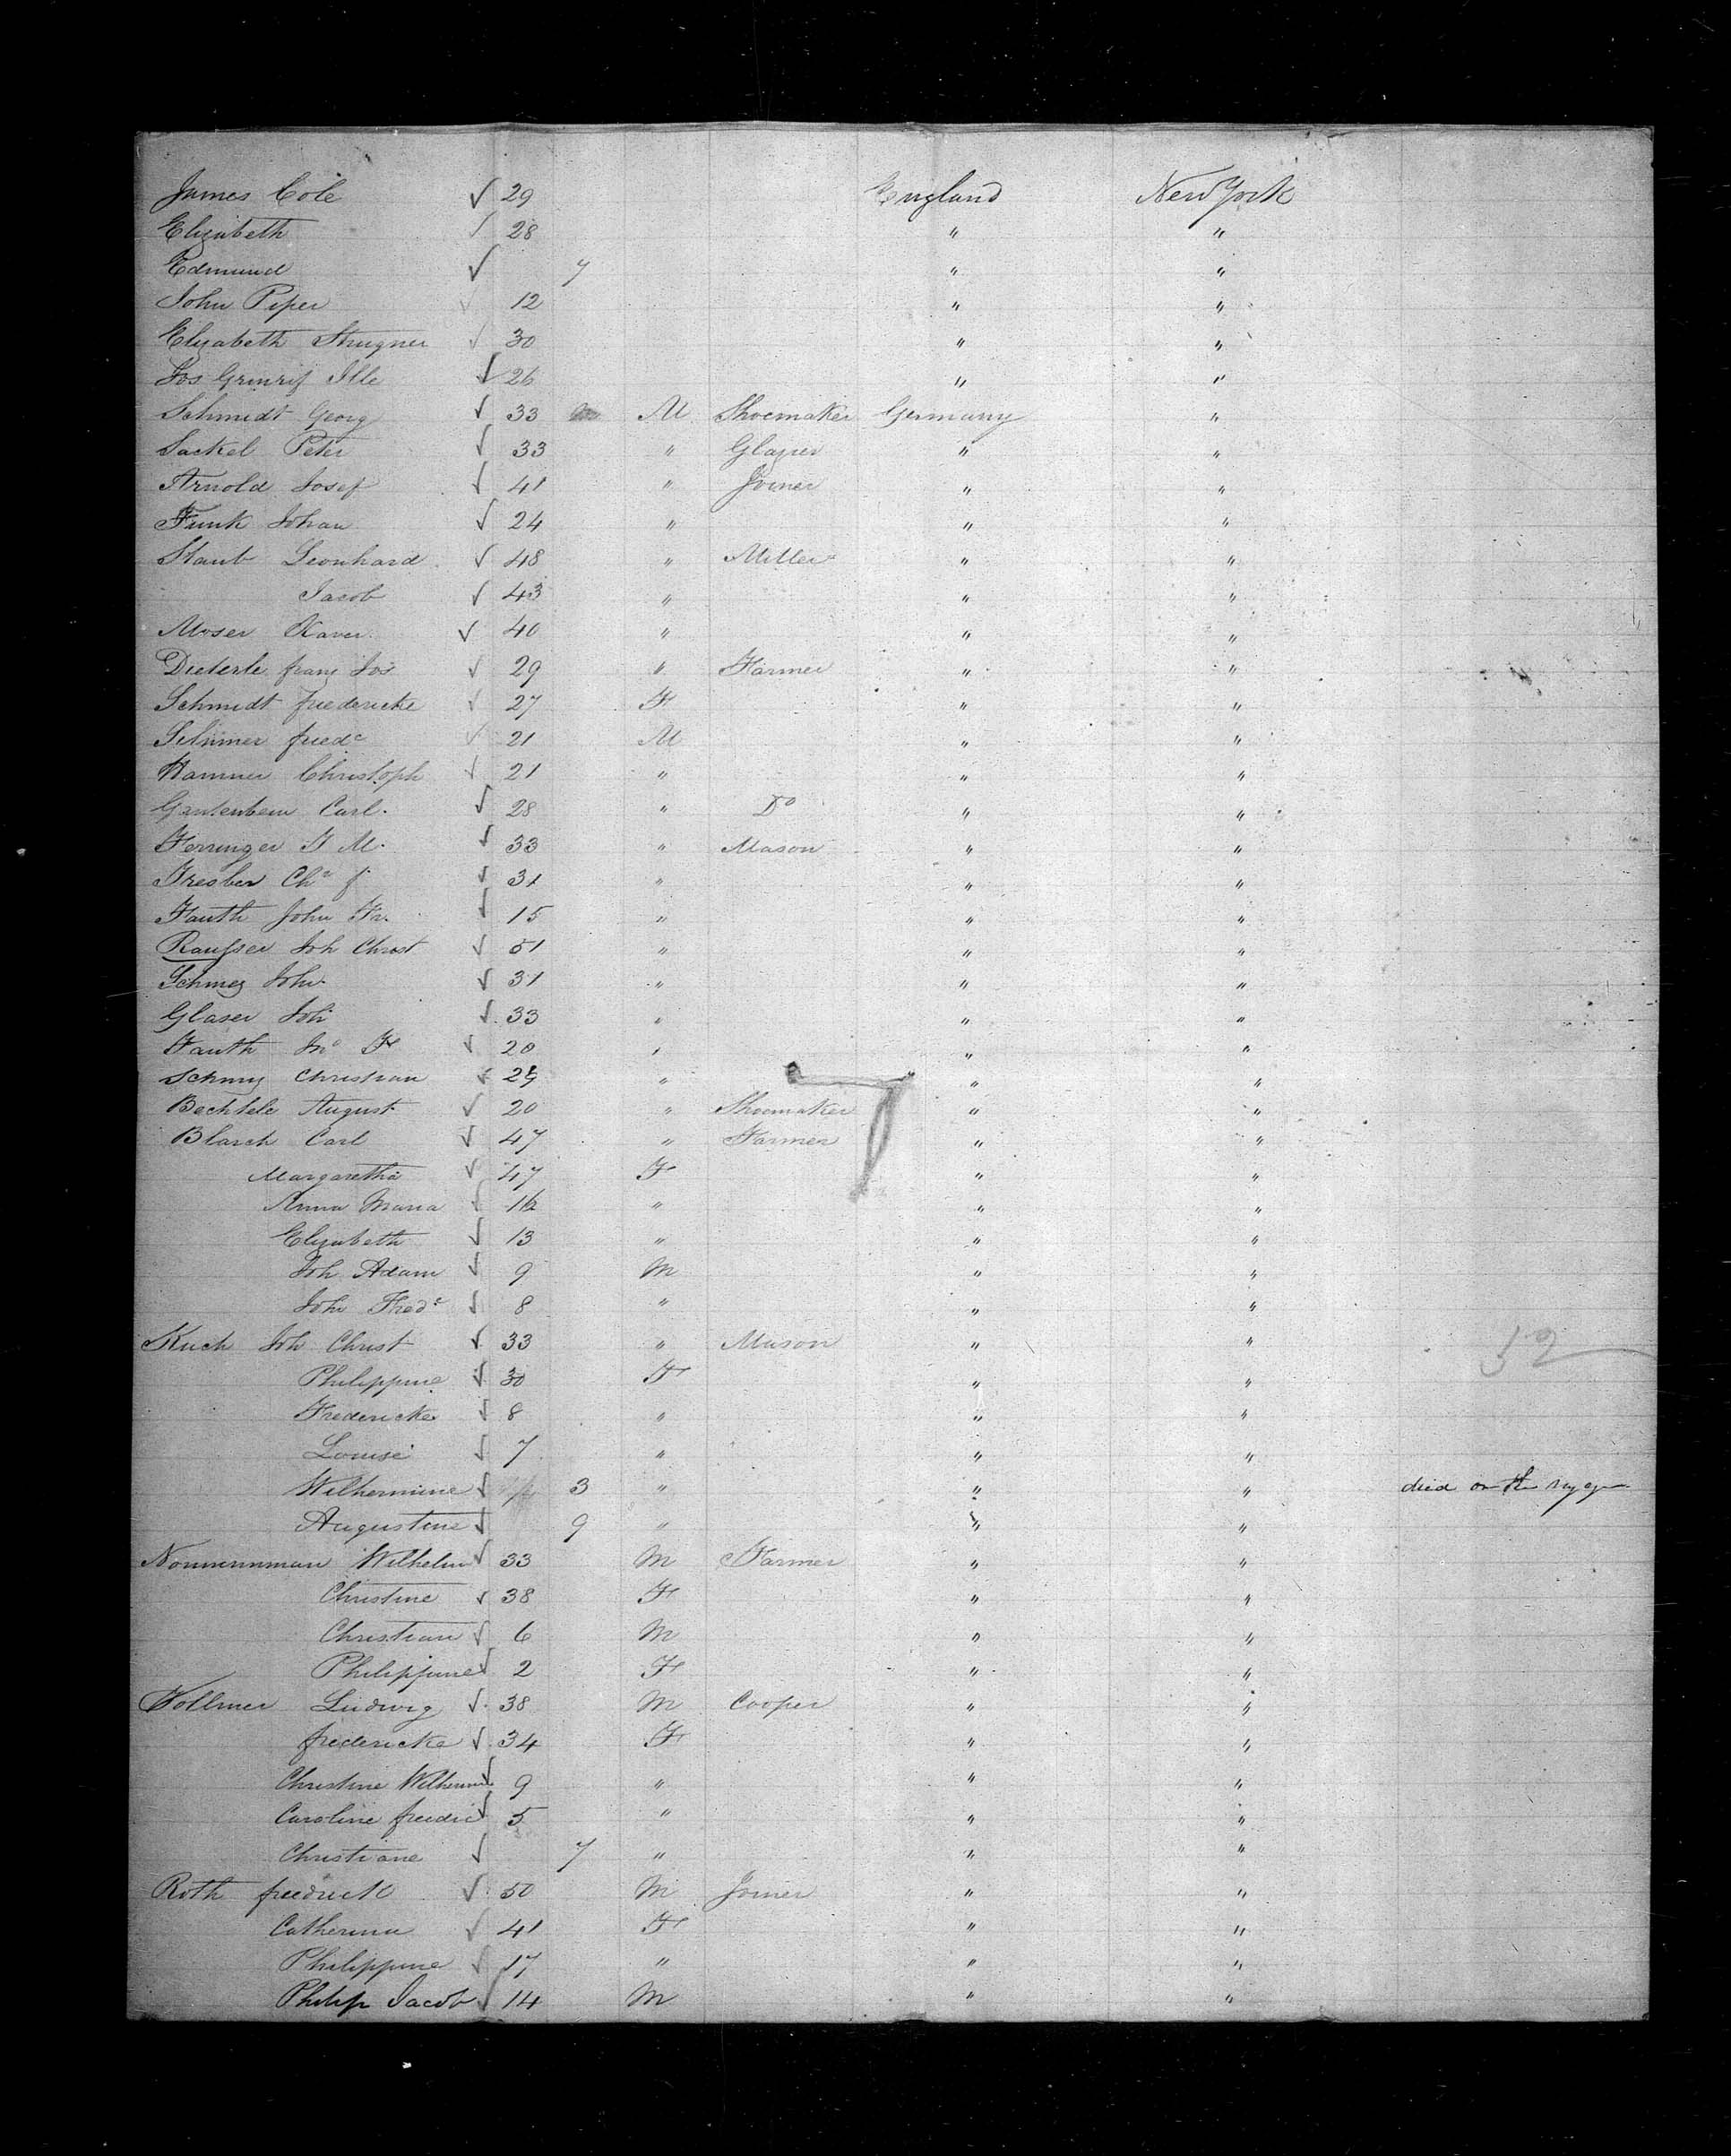 James Cole √ 29 England New York
Elizabeth √ 28 " "
Edmund √ 7 " "
John Piper √ 12 " "
Elizabeth √ 30 " "
Jos √ 26 " "
Schmidt Georg √ 33 M Shoemaker Germany "
Sackel Peter √ 33 " Glazier " "
Arnold Josef √ 41 " Joiner " "
Funk Johan √ 24 " " "
Staub Leonhard √ 48 " Miller " "
Jacob √ 43 " " "
Moser Xaver √ 40 " " "
Dieterle franz Jos √ 29 " Farmer " "
Schmidt friedericke √ 27 F " "
fried^c √ 21 M " "
Hammer Christoph √ 21 " " "
Gantenbein Carl √ 28 " D^o " "
Ferringer J M. √ 33 " Mason " "
Ch^n f √ 31 " " "
Fauth John Fr. √ 15 " " "
Joh Christ √ 51 " " "
Schmez John √ 31 " " "
Glaser Joh √ 33 " " "
Fauth Jn^o Fr √ 20 " " "
Christian √ " " "
Bechtele August √ 20 " Shoemaker " "
Blarch Carl √ 47 " Farmer " "
Margaretha √ 47 F " "
Anna Maria √ 16 " " "
Elizabeth √ 13 " " "
Joh Adam √ 9 M " "
Joh Fred^k √ 8 " " "
Kuch Joh Christ √ 33 " Mason " "
Philippine √ 30 F " "
Fredericke √ 8 " " "
Louise √ 7 " " "
Wilhermine √ 3 " " " died on the voyage
Augustine √ 9 " " "
Nonnenman Wilhelm √ 33 M Farmer " "
Christine √ 38 F " "
Christian √ 6 M " "
Philippine √ 2 F " "
Vollmer Ludwig √ 38 M Cooper " "
fredericke √ 34 F " "
Christine Wilhermine √ 9 " " "
Caroline friedric √ 5 " " "
Christiane √ 7 " " "
Roth friedrick √ 50 M Joiner " "
Catherina √ 41 F " "
Philippine √ 17 " " "
Philip Jacob √ 14 M " "